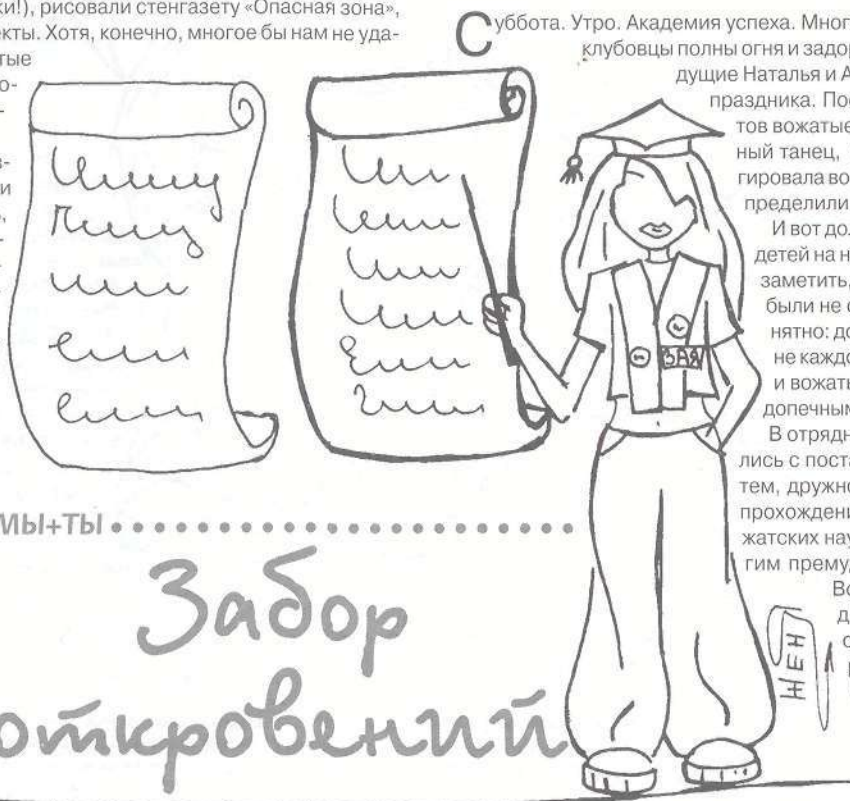 ки!), рисовали стенгазету «Опасная зона»,
екты. Хотя, конечно, многое бы нам не уда-
тые
о-
-
з-
и
,
-
Суббота. Утро. Академия успеха. Мног
клубовцы полны огня и задор
дущие Наталья и А
праздника. Пос
тов вожатые
ный танец,
гировала во
пределили
И вот до
детей на н
заметить,
были не с
нятно: до
не каждо
и вожаты
допечным
В отрядн
лись с поста
тем, дружно
прохождени
жатских нау
гим прему
Во
д
с
ЗАЯ
МЫ+ТЫ
Забор
откровений
ЖЕН